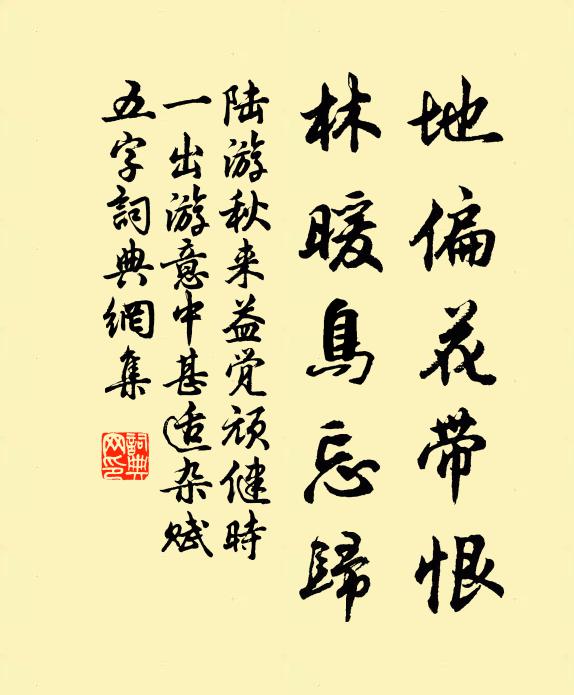 地偏花带恨
林暖鳥忘歸
陆游秋来益觉顽健時
一出游意中甚适杂赋
五字詞典網集
詞典
网印